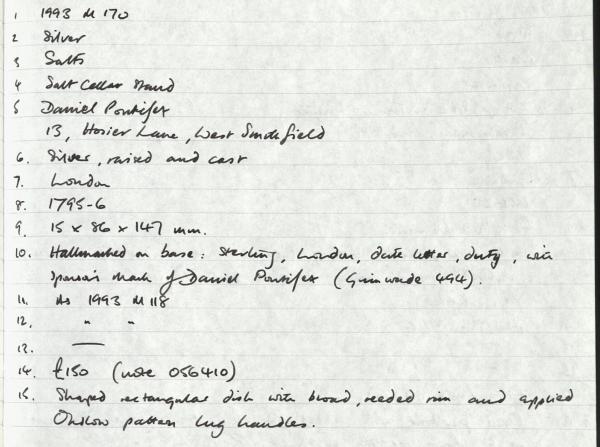 1 1993 M 170
2 Silver
3 Salts
4 Salt Cellar Stand
5 Daniel Pontifex
13, Hosier Lane, West Smithfield
6. Silver, raised and cast
7. London
8. 1795-6
9. 15 x 86 x 147 mm.
10. Hallmarked on base: Sterling, London, date letter, duty, with
sponsor's mark of Daniel Pontifex (Grimwade 494).
11. As 1993 M 118
12. " "
13. —
14. £150 (note 056410)
15. Shaped rectangular dish with broad, reeded rim and applied
Onslow pattern lug handles.